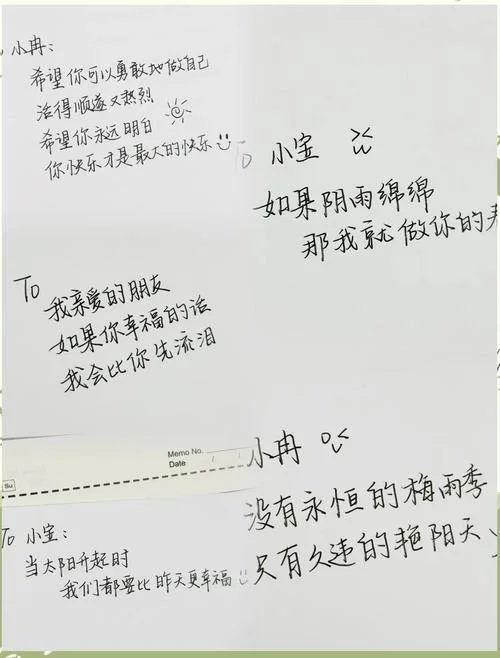 小冉：
希望你可以勇敢地做自己
活得顺遂又热烈
希望你永远明白
你快乐才是最大的快乐
To 小宝
如果阴雨绵绵
那我就做你的
To
我亲爱的朋友
如果你幸福的话
我会比你先流泪
Memo No.
Date / /
Su
小冉
没有永恒的梅雨季
只有久违的艳阳天
To 小宝：
当太阳升起时
我们都要比昨天更幸福